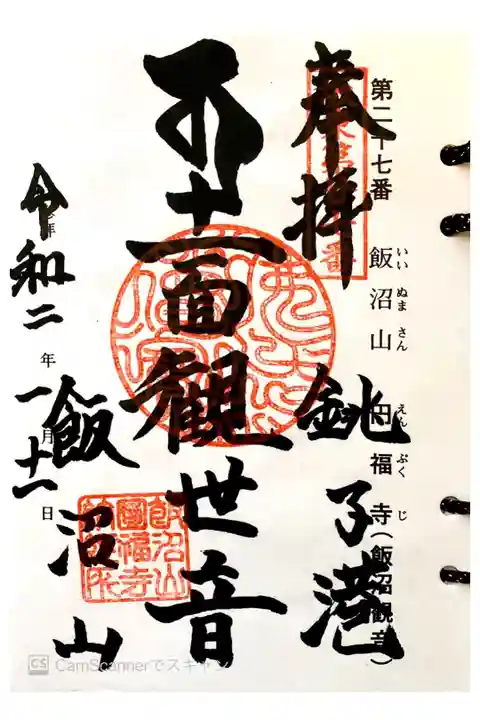 第二十七番 飯沼山 円福寺(飯沼観音)
いいぬまさん えんぷくじ
奉拝 銚子港
十一面観世音
飯沼山
令和二年一月十一日
飯沼山
圓福寺
CS CamScannerでスキャン